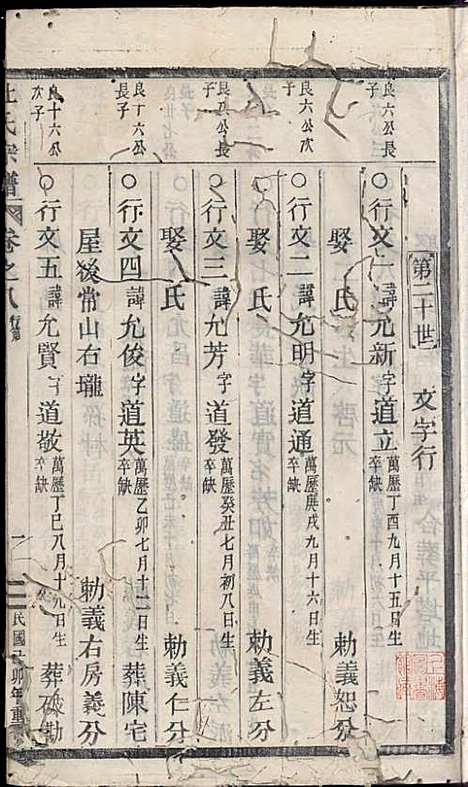 第二十世
文字行
良六公長子
○行文一諱允新字道立萬歷丁酉九月十五日生卒缺
娶 氏 勅義恕分
良六公次子
○行文二諱允明字道通萬歷庚戌九月十六日生卒缺
娶 氏 勅義左分
良 公長子
○行文三諱允芳字道發萬歷癸丑七月初八日生卒缺
娶 氏 勅義仁分
良十六公長子
○行文四諱允俊字道英萬歷乙卯七月十二日生卒缺葬陳宅
屋後常山右瓏 勅義右房義分
良十六公次子
○行文五諱允賢字道敬萬歷丁巳八月十九日生卒缺 葬破勘
氏宗譜 卷之八 民國 卯年重